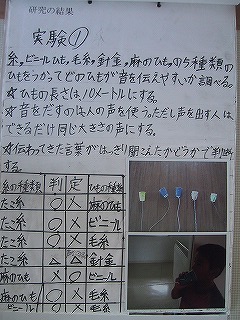 研究の結果
実験①
糸,ビニールひも,毛糸,針金,麻のひも,の5種類の
ひもをつかってどのひもが音を伝えやすいか調べる。
☆ひもの長さは、10メートルにする。
☆音をだすのは人の声を使う。ただし声を出す人は、
できるだけ同じ大きさの声にする。
☆伝わってきた言葉がはっきり聞こえたかどうかで判断
する。
糸の種類 判定 ひもの種類
たこ糸 ○ × 麻のひも
たこ糸 ○ × ビニール
たこ糸 ○ × 毛糸
たこ糸 △ 針金
麻のひも ○ ビニール
麻のひも ○ × 毛糸
ビニール ○ × 毛糸